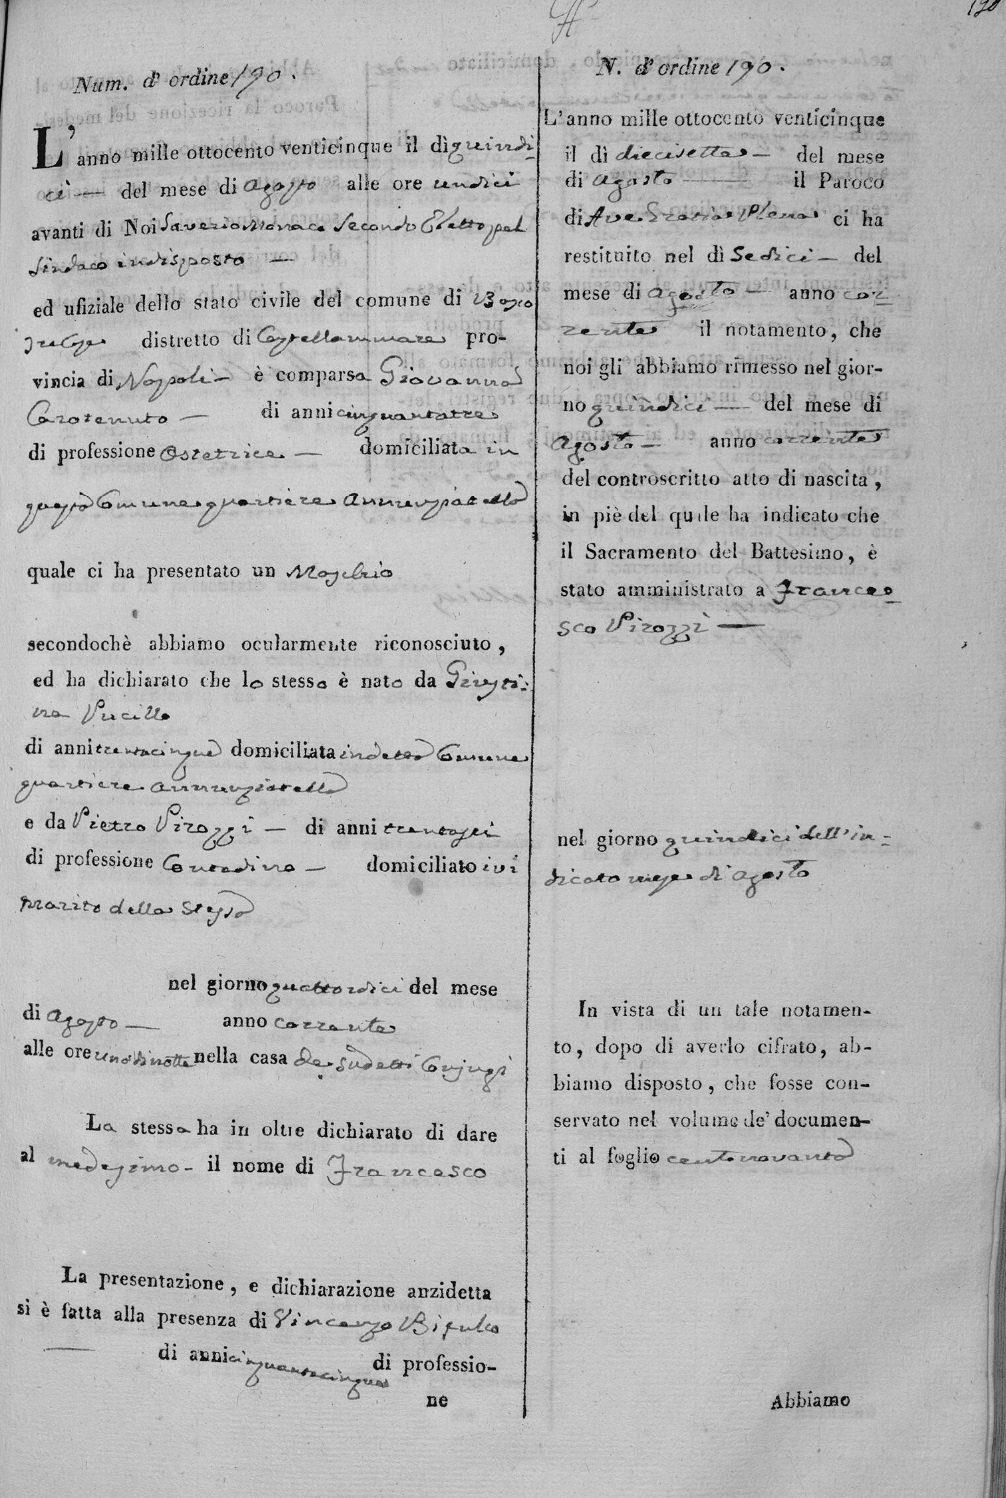 190
Num. d'ordine 190.
L'anno mille ottocento venticinque il dì quindi-
ci — del mese di Agosto alle ore undici
avanti di Noi Saverio Monaco Secondo Eletto pel
Sindaco indisposto —
ed ufiziale dello stato civile del comune di Bosco
Tre Case distretto di Castellammare pro-
vincia di Napoli — è comparsa Giovanna
Carotenuto — di anni cinquantatre
di professione Ostetrice — domiciliata in
questa Comune quartiere Annunziatella
quale ci ha presentato un Maschio
secondochè abbiamo ocularmente riconosciuto,
ed ha dichiarato che lo stesso è nato da Giusti-
na Vucillo
di anni trentacinque domiciliata in detta Comune
quartiere Annunziatella
e da Pietro Pirozzi — di anni trentasei
di professione Contadino — domiciliato ivi
marito della stessa
nel giorno quattordici del mese
di Agosto — anno corrente
alle ore una di notte nella casa de sudetti Conjugi
La stessa ha in oltre dichiarato di dare
al medesimo - il nome di Francesco
La presentazione, e dichiarazione anzidetta
si è fatta alla presenza di Vincenzo Bifulco
— di anni cinquantacinque di professio-
ne
N. d'ordine 190.
L'anno mille ottocento venticinque
il dì diecisette — del mese
di Agosto — il Paroco
di Ave Gratia Plena ci ha
restituito nel dì Sedici — del
mese di Agosto — anno cor-
rente il notamento, che
noi gli abbiamo rimesso nel gior-
no quindici — del mese di
Agosto — anno corrente
del controscritto atto di nascita,
in piè del quale ha indicato che
il Sacramento del Battesimo, è
stato amministrato a France-
sco Pirozzi —
nel giorno quindici dell'in-
dicato mese di Agosto
In vista di un tale notamen-
to, dopo di averlo cifrato, ab-
biamo disposto, che fosse con-
servato nel volume de' documen-
ti al foglio centonovanta
Abbiamo